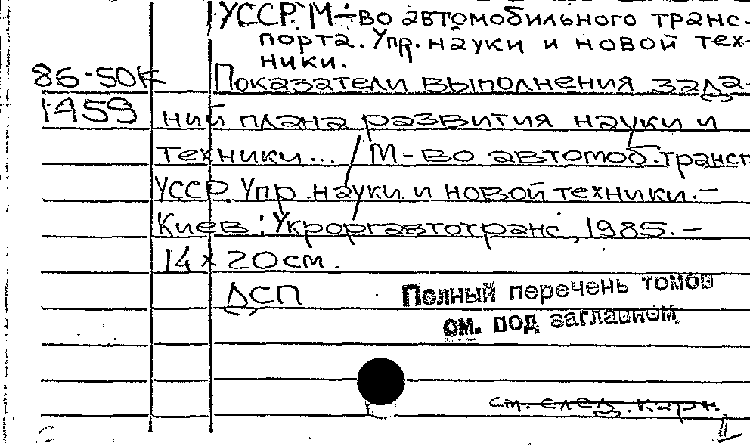 УССР. М-во автомобильного транс-
порта. Упр. науки и новой тех-
ники.
86-50к Показатели выполнения зада-
1459 ний плана развития науки и
техники... / М-во автомоб. трансп.
УССР. Упр. науки и новой техники. -
Киев: Укроргавтотранс, 1985. -
14 x 20 см.
ДСП
Полный перечень томов
см. под заглавием
см. след. карт.